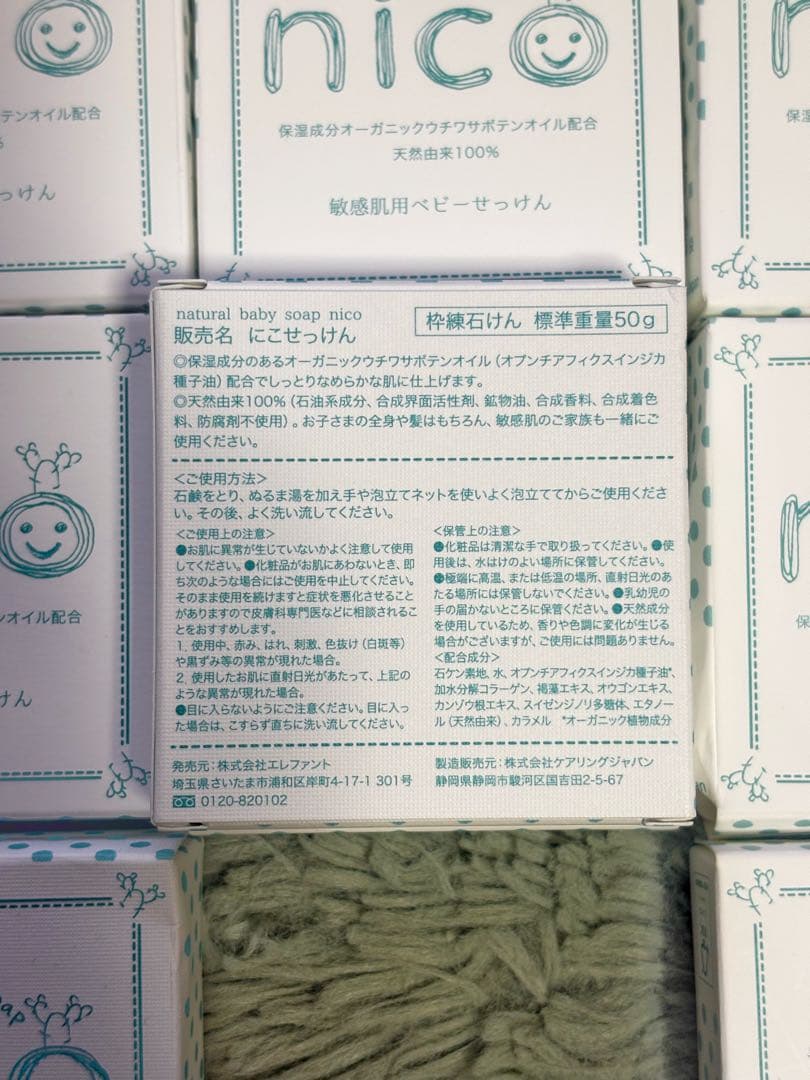 nico
保湿成分オーガニックウチワサボテンオイル配合
天然由来100%
敏感肌用ベビーせっけん
テンオイル配合
%
っけん
保湿
natural baby soap nico
販売名 にこせっけん
枠練石けん 標準重量50g
◎保湿成分のあるオーガニックウチワサボテンオイル(オプンチアフィクスインジカ
種子油)配合でしっとりなめらかな肌に仕上げます。
◎天然由来100%(石油系成分、合成界面活性剤、鉱物油、合成香料、合成着色
料、防腐剤不使用)。お子さまの全身や髪はもちろん、敏感肌のご家族も一緒にご
使用ください。
<ご使用方法>
石鹸をとり、ぬるま湯を加え手や泡立てネットを使いよく泡立ててからご使用くださ
い。その後、よく洗い流してください。
<ご使用上の注意>
●お肌に異常が生じていないかよく注意して使用
してください。●化粧品がお肌にあわないとき、即
ち次のような場合にはご使用を中止してください。
そのまま使用を続けますと症状を悪化させること
がありますので皮膚科専門医などに相談されるこ
とをおすすめします。
1. 使用中、赤み、はれ、刺激、色抜け(白斑等)
や黒ずみ等の異常が現れた場合。
2. 使用したお肌に直射日光があたって、上記の
ような異常が現れた場合。
●目に入らないようにご注意ください。目に入っ
た場合は、こすらず直ちに洗い流してください。
<保管上の注意>
●化粧品は清潔な手で取り扱ってください。●使
用後は、水はけのよい場所に保管してください。
●極端に高温、または低温の場所、直射日光のあ
たる場所には保管しないでください。●乳幼児の
手の届かないところに保管ください。●天然成分
を使用しているため、香りや色調に変化が生じる
場合がございますが、ご使用には問題ありません。
<配合成分>
石ケン素地、水、オプンチアフィクスインジカ種子油*、
加水分解コラーゲン、褐藻エキス、オウゴンエキス、
カンゾウ根エキス、スイゼンジノリ多糖体、エタノー
ル(天然由来)、カラメル *オーガニック植物成分
発売元:株式会社エレファント
埼玉県さいたま市浦和区岸町4-17-1 301号
0120-820102
製造販売元:株式会社ケアリングジャパン
静岡県静岡市駿河区国吉田2-5-67
テンオイル配合
けん
保